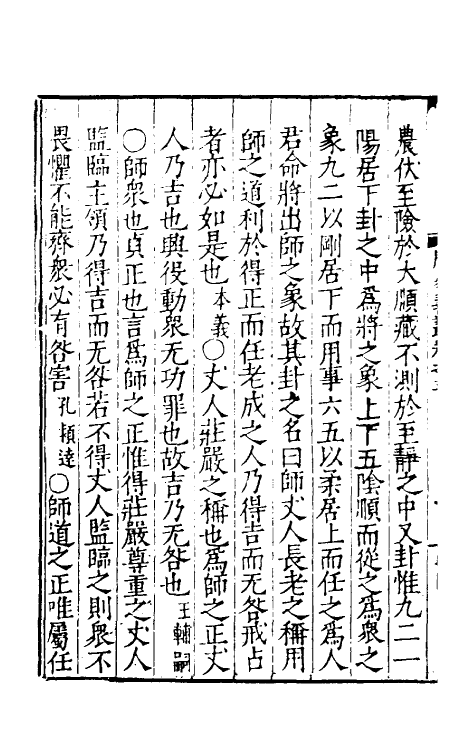 農伏至險於大順藏不測於至靜之中又卦惟九二一
陽居下卦之中為將之象上下五陰順而從之為衆之
象九二以剛居下而用事六五以柔居上而任之為人
君命將出師之象故其卦之名曰師丈人長老之稱用
師之道利於得正而任老成之人乃得吉而无咎戒占
者亦必如是也本義○丈人莊嚴之稱也為師之正丈
人乃吉也興役動衆无功罪也故吉乃无咎也王輔嗣
○師衆也貞正也言為師之正惟得莊嚴尊重之丈人
監臨主領乃得吉而无咎若不得丈人監臨之則衆不
畏懼不能齊衆必有咎害孔穎達○師道之正唯屬任